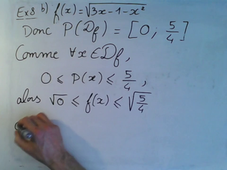 Ex8 b) f(x)=√3x-1-x²
Donc P(Df) = [0, 5/4]
Comme ∀x∈Df,
0 ≤ P(x) ≤ 5/4,
alors √0 ≤ f(x) ≤ √5/4